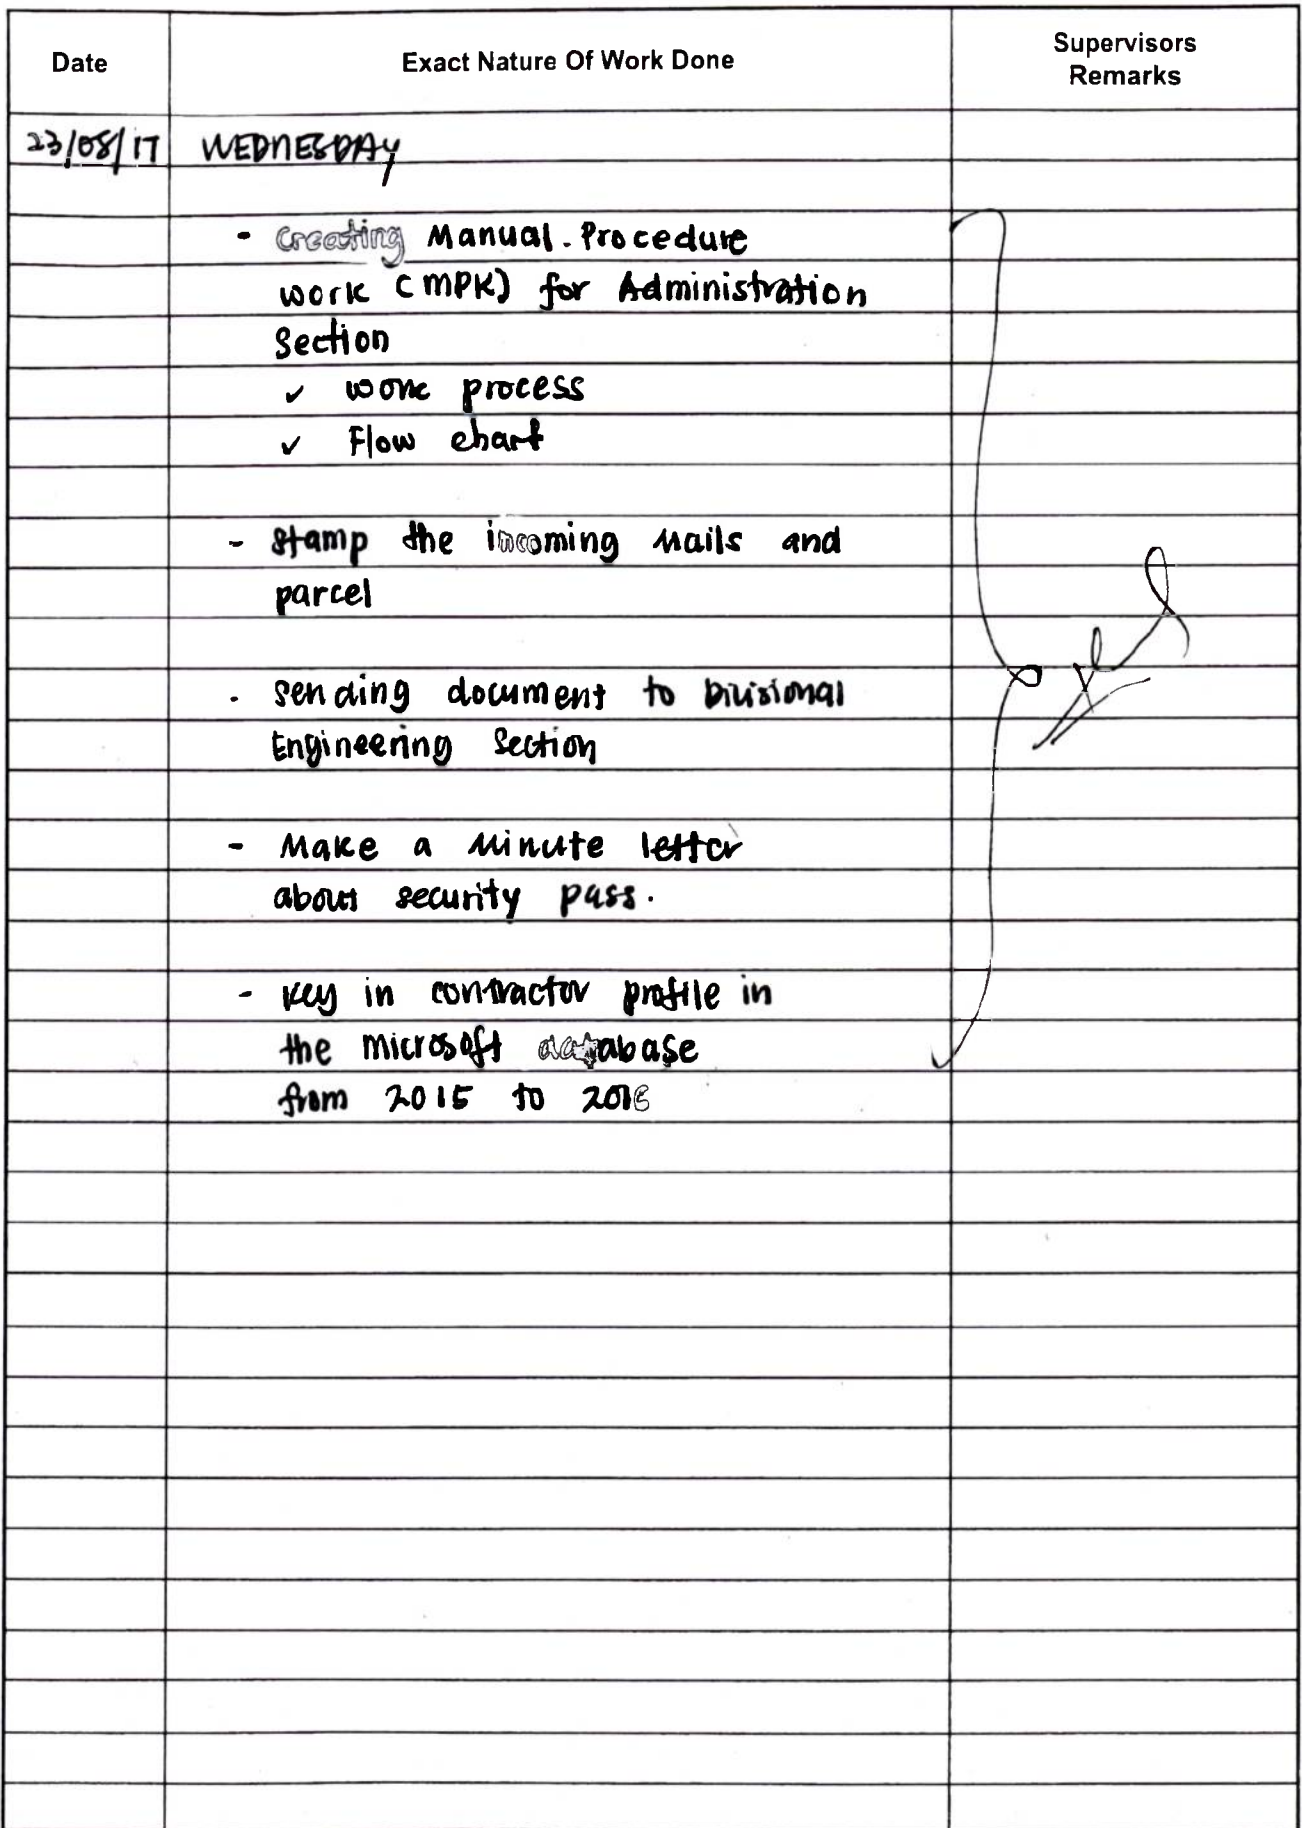 Date Exact Nature Of Work Done Supervisors
Remarks
23/08/17 WEDNESDAY
- Creating Manual. Procedure
work (MPK) for Administration
Section
✓ work process
✓ Flow chart
- stamp the incoming mails and
parcel
- sending document to Divisional
Engineering Section
- Make a minute letter
about security pass.
- key in contractor profile in
the microsoft database
from 2015 to